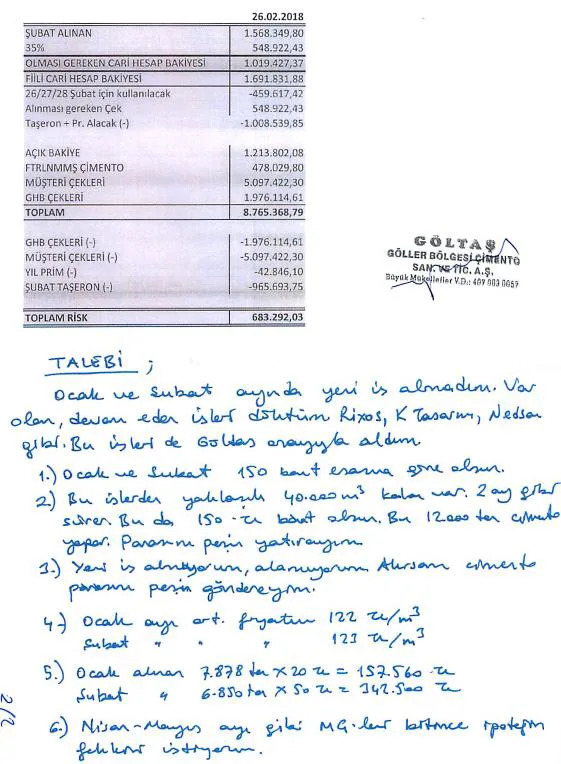 26.02.2018
ŞUBAT ALINAN 1.568.349,80
35% 548.922,43
OLMASI GEREKEN CARİ HESAP BAKİYESİ 1.019.427,37
FİİLİ CARİ HESAP BAKİYESİ 1.691.831,88
26/27/28 Şubat için kullanılacak -459.617,42
Alınması gereken Çek 548.922,43
Taşeron + Pr. Alacak (-) -1.008.539,85
AÇIK BAKİYE 1.213.802,08
FTRLNMMŞ ÇİMENTO 478.029,80
MÜŞTERİ ÇEKLERİ 5.097.422,30
GHB ÇEKLERİ 1.976.114,61
TOPLAM 8.765.368,79
GHB ÇEKLERİ (-) -1.976.114,61
MÜŞTERİ ÇEKLERİ (-) -5.097.422,30
YIL PRİM (-) -42.846,10
ŞUBAT TAŞERON (-) -965.693,75
TOPLAM RİSK 683.292,03
GÖLTAŞ
GÖLLER BÖLGESİ ÇİMENTO
SAN. VE TİC. A.Ş.
Büyük Mükellefler V.D.: 407 003 0057
TALEBİ ;
Ocak ve Şubat ayında yeni iş almadım. Var
olan, devam eden işleri döktüm Rixos, K Tasarım,
gibi. Bu işleri de Göltaş arayıyla aldım
1.) Ocak ve Şubat 150 bant esasına göre olsun.
2.) Bu işlerden yaklaşık 40.000 m³ kalan var. 2 ay gibi
sürer. Bu da 150.-TL bant olsun. Bu 12000 ton çimento
yapar. Parasını peşin yatırayım
3.) Yeni iş almıyorum, alamıyorum Alırsam çimento
parasını peşin göndereyim.
4.) Ocak ayı ort. fiyatım 122 TL/m³
Şubat " " " 123 TL/m³
5.) Ocak alınan 7.878 ton x 20 TL = 157.560 TL
Şubat " 6.850 ton x 50 TL = 342.500 TL
6.) Nisan-Mayıs ayı gibi MG.leri bitince ipoteğin
fekkini istiyorum.
2/2